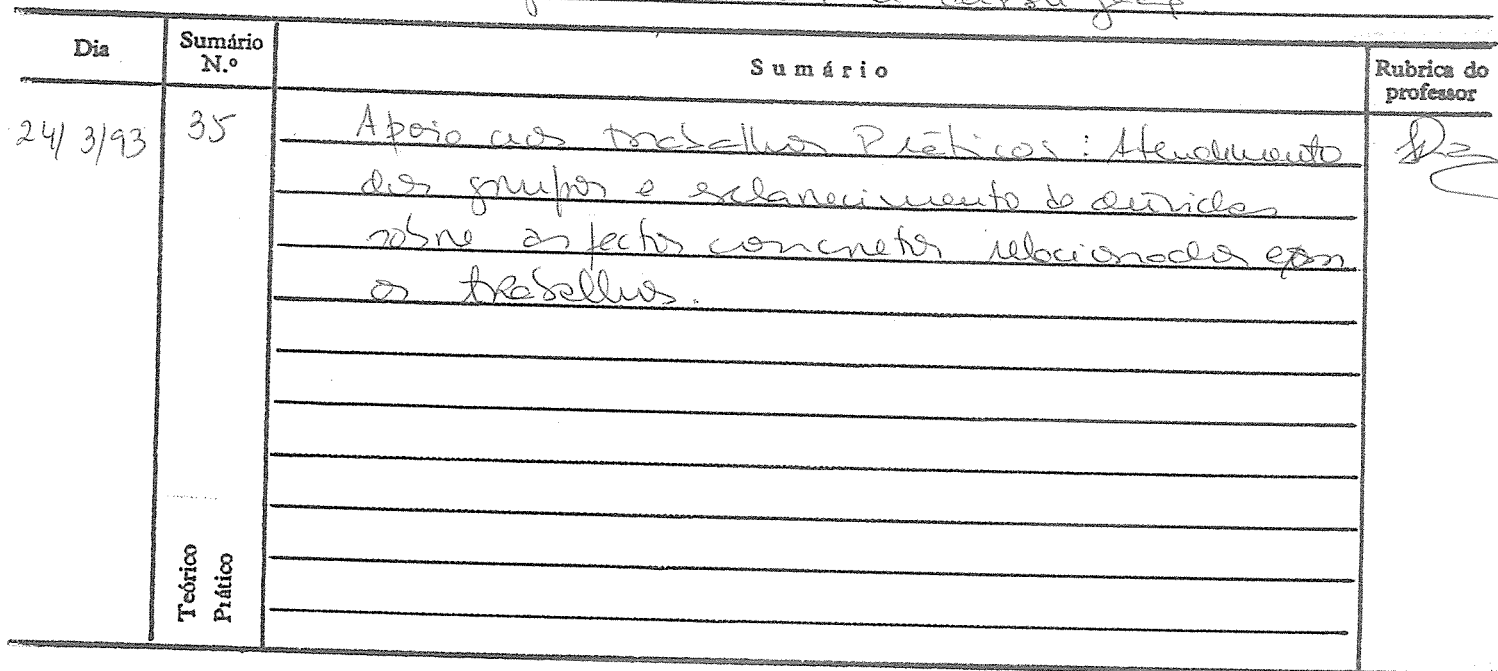 Dia
Sumário N.º
Sumário
Rubrica do professor
24/3/93
35
Apoio aos trabalhos Práticos: Atendimento
dos grupos e esclarecimento de dúvidas
sobre aspectos concretos relacionados com
os trabalhos.
Teórico
Prático